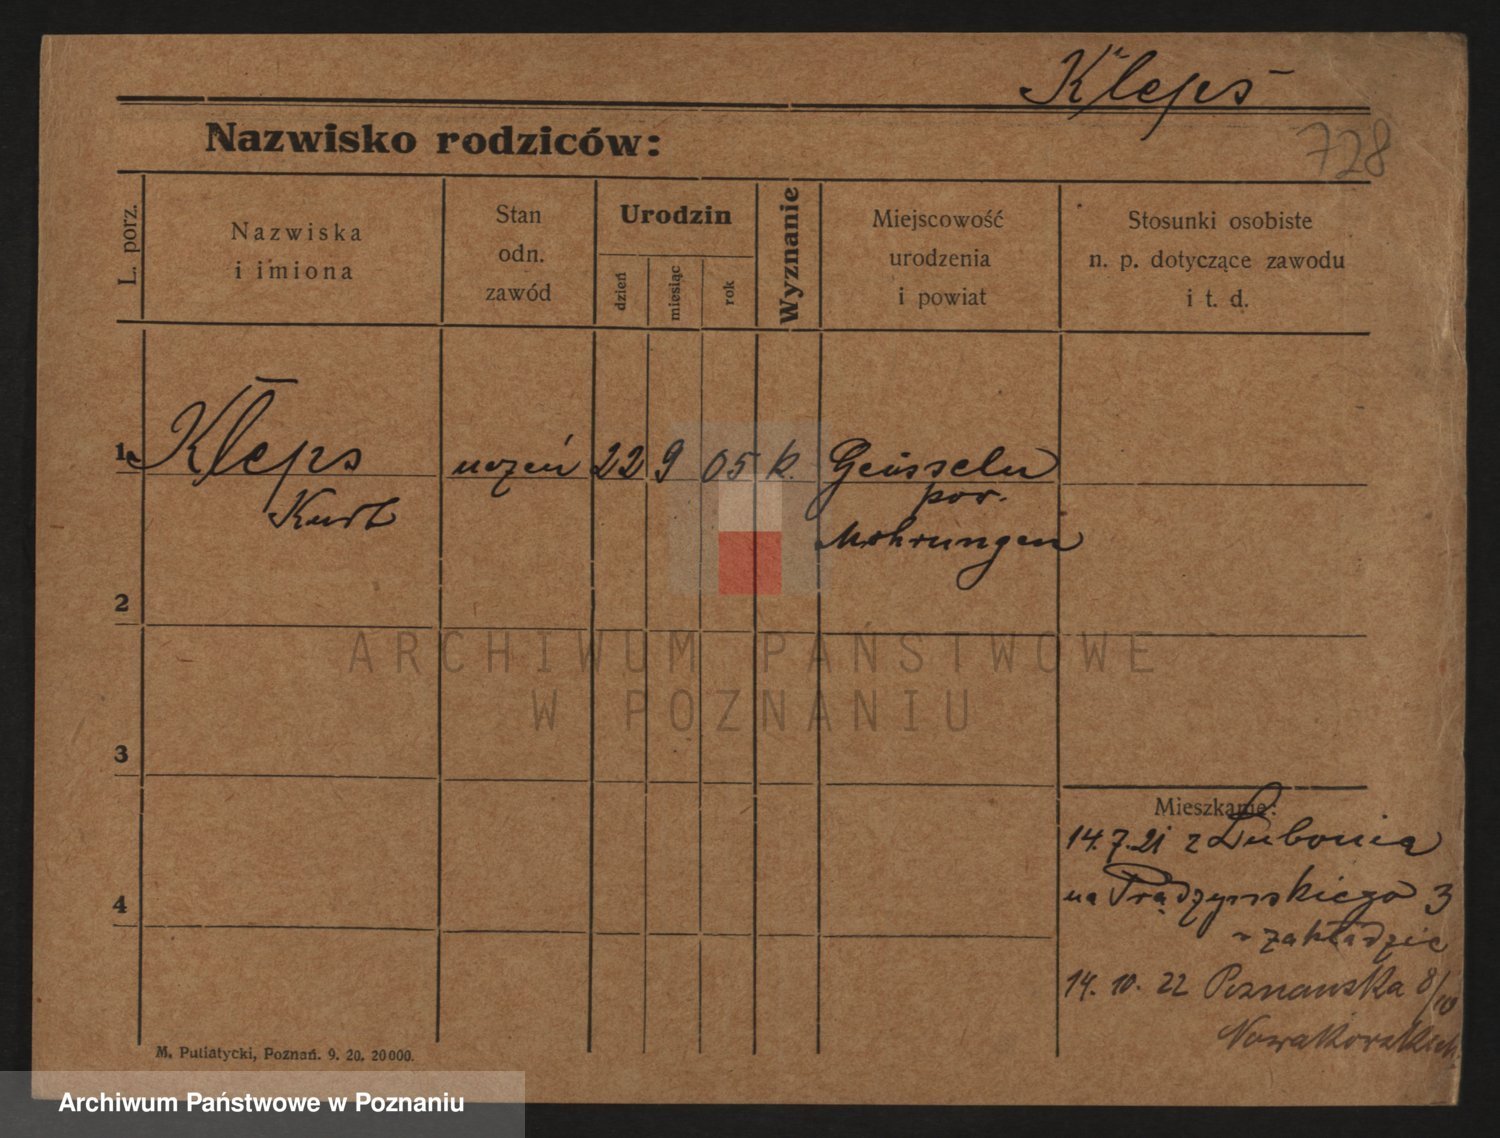 Kleps
728
Nazwisko rodziców:
L. porz.
Nazwiska
i imiona
Stan
odn.
zawód
Urodzin
dzień
miesiąc
rok
Wyznanie
Miejscowość
urodzenia
i powiat
Stosunki osobiste
n. p. dotyczące zawodu
i t. d.
1. Kleps uczeń 22 9 05 k. Geisseln
Kurt
pow.
Mohrungen
2
ARCHIWUM PAŃSTWOWE
W POZNANIU
3
Mieszkanie:
14.7.21 z Lubonia
na Prądzyńskiego 3
w zakładzie
4
14. 10. 22 Poznańska 8/10
M. Putiatycki, Poznań. 9. 20. 20000.
Archiwum Państwowe w Poznaniu